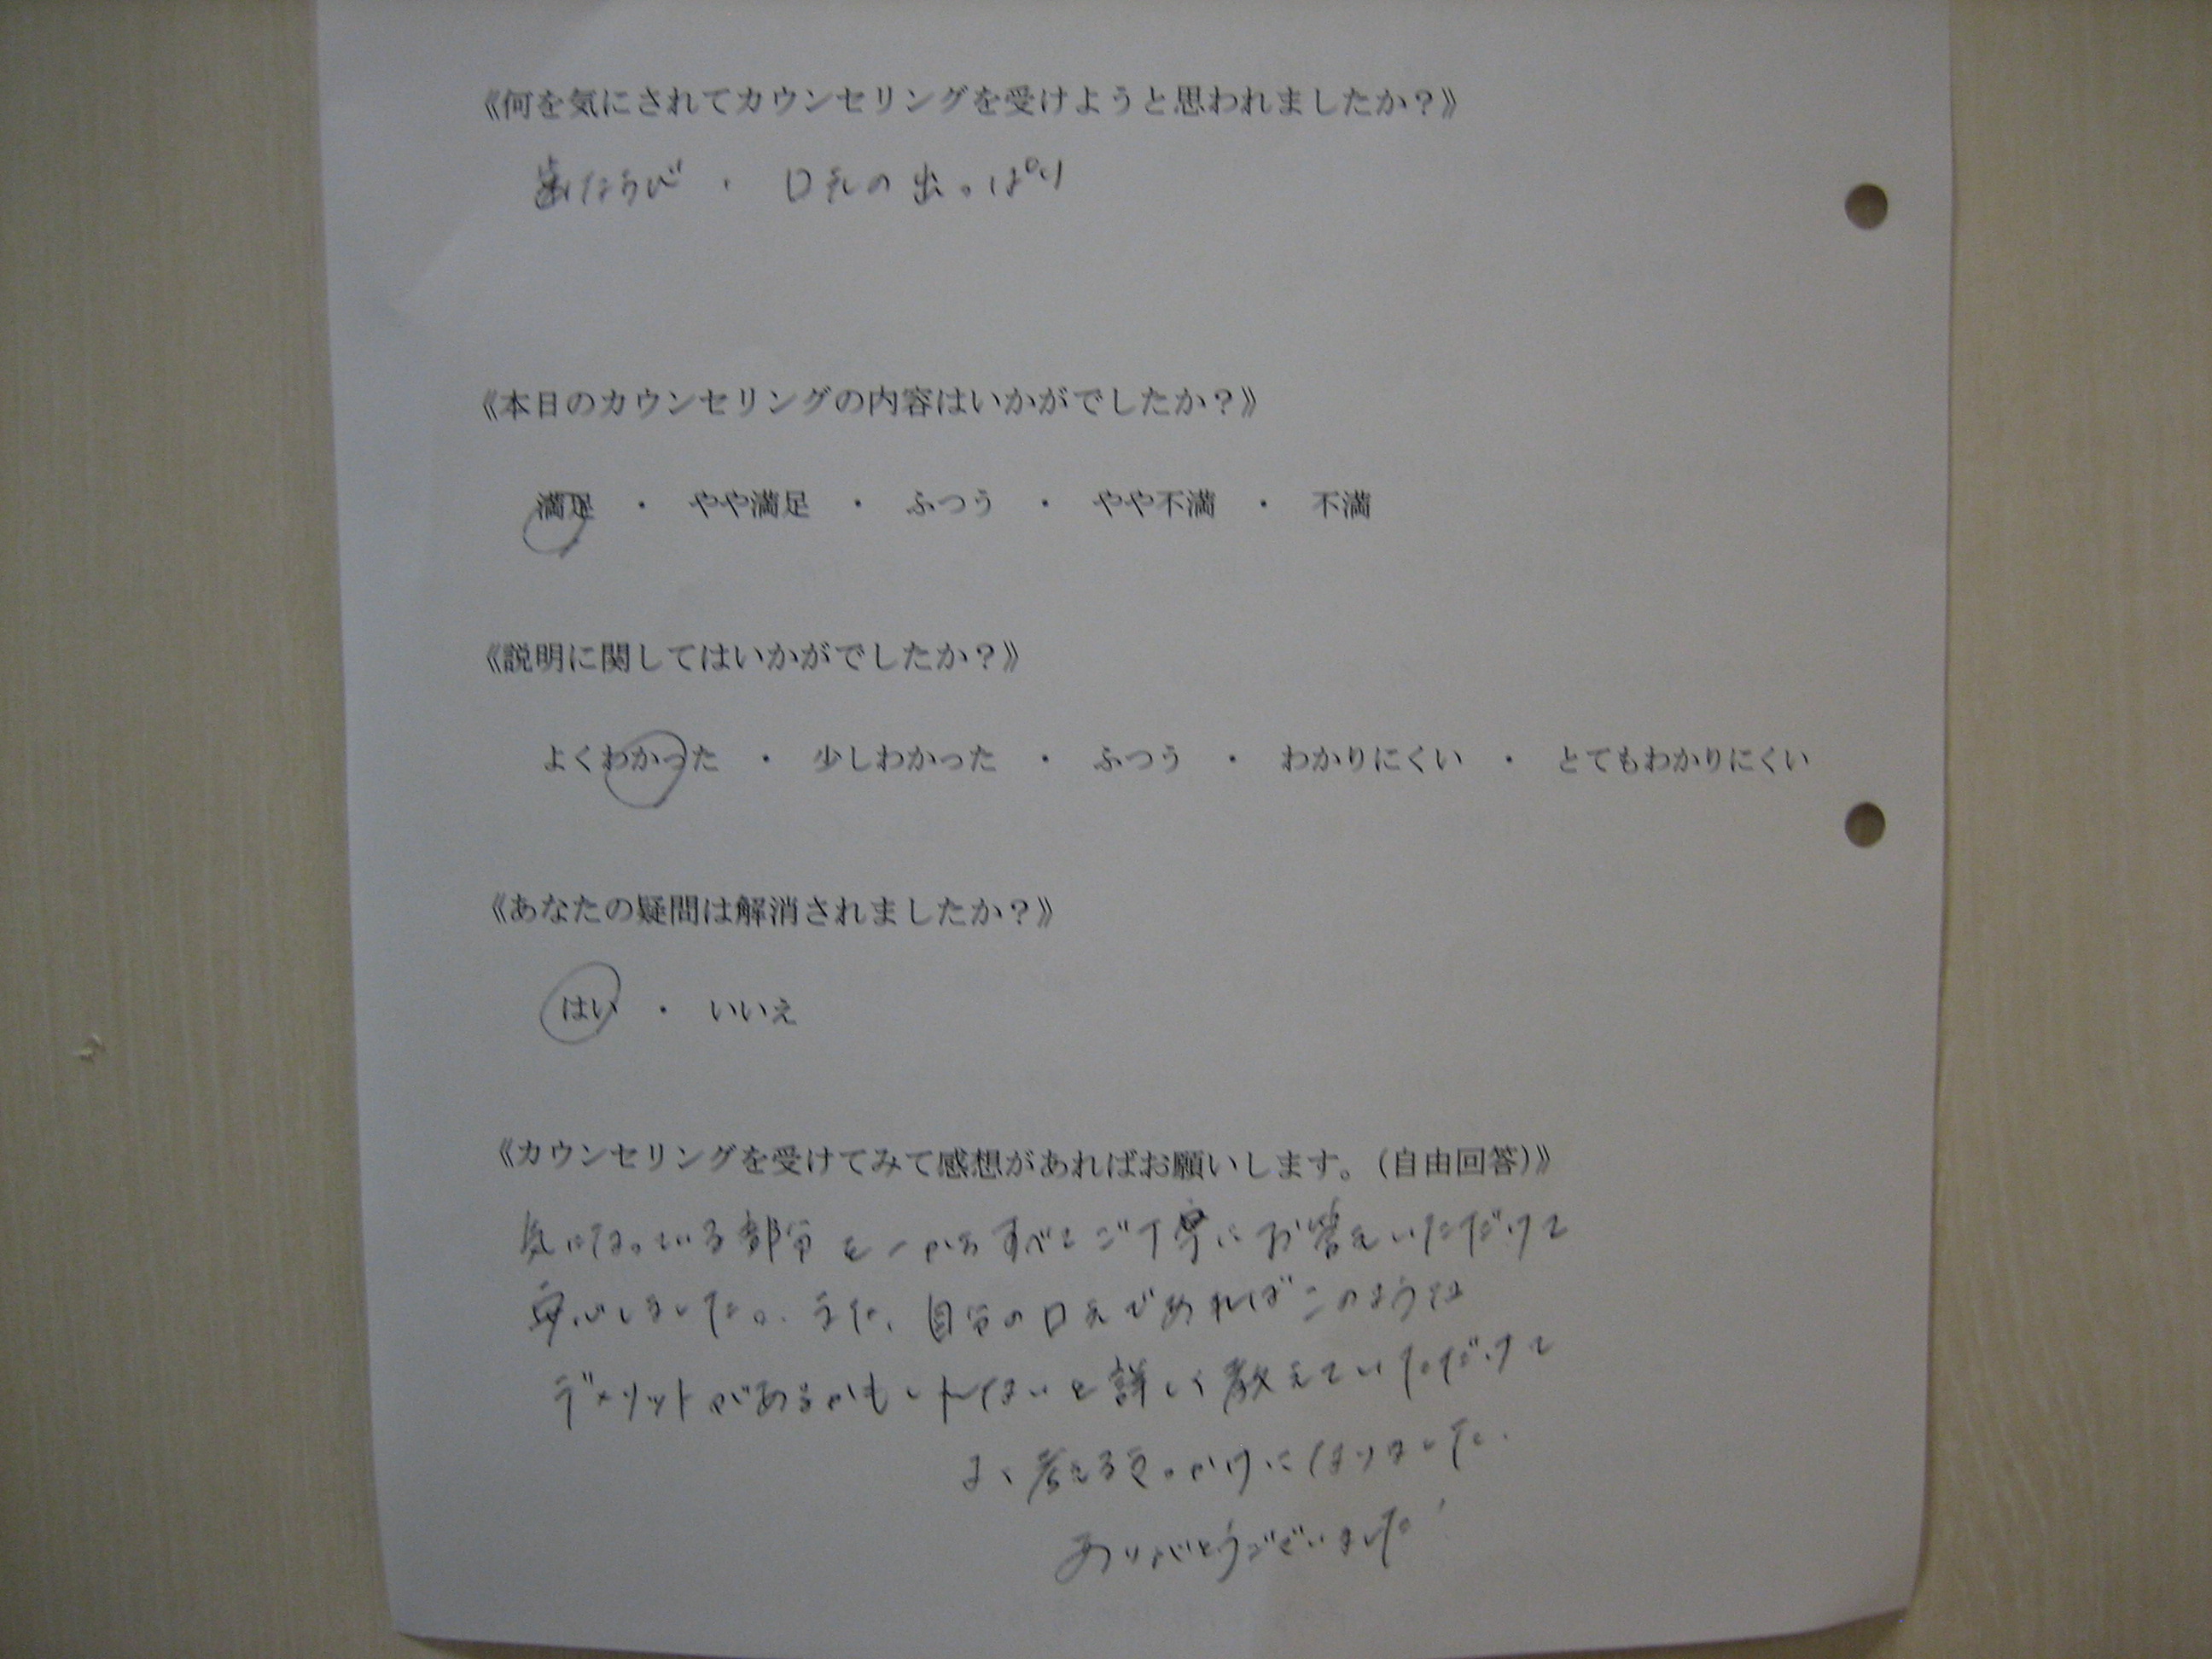 《何を気にされてカウンセリングを受けようと思われましたか？》
歯ならび ・ 口元の出っぱり
《本日のカウンセリングの内容はいかがでしたか？》
満足 ・ やや満足 ・ ふつう ・ やや不満 ・ 不満
《説明に関してはいかがでしたか？》
よくわかった ・ 少しわかった ・ ふつう ・ わかりにくい ・ とてもわかりにくい
《あなたの疑問は解消されましたか？》
はい ・ いいえ
《カウンセリングを受けてみて感想があればお願いします。（自由回答）》
気になっている部分を一からすべてご丁寧にお答えいただけて
安心しました。また、自分の口元であればこのような
デメリットがあるかもしれないと詳しく教えていただけて
よく考えるきっかけになりました。
ありがとうございました！